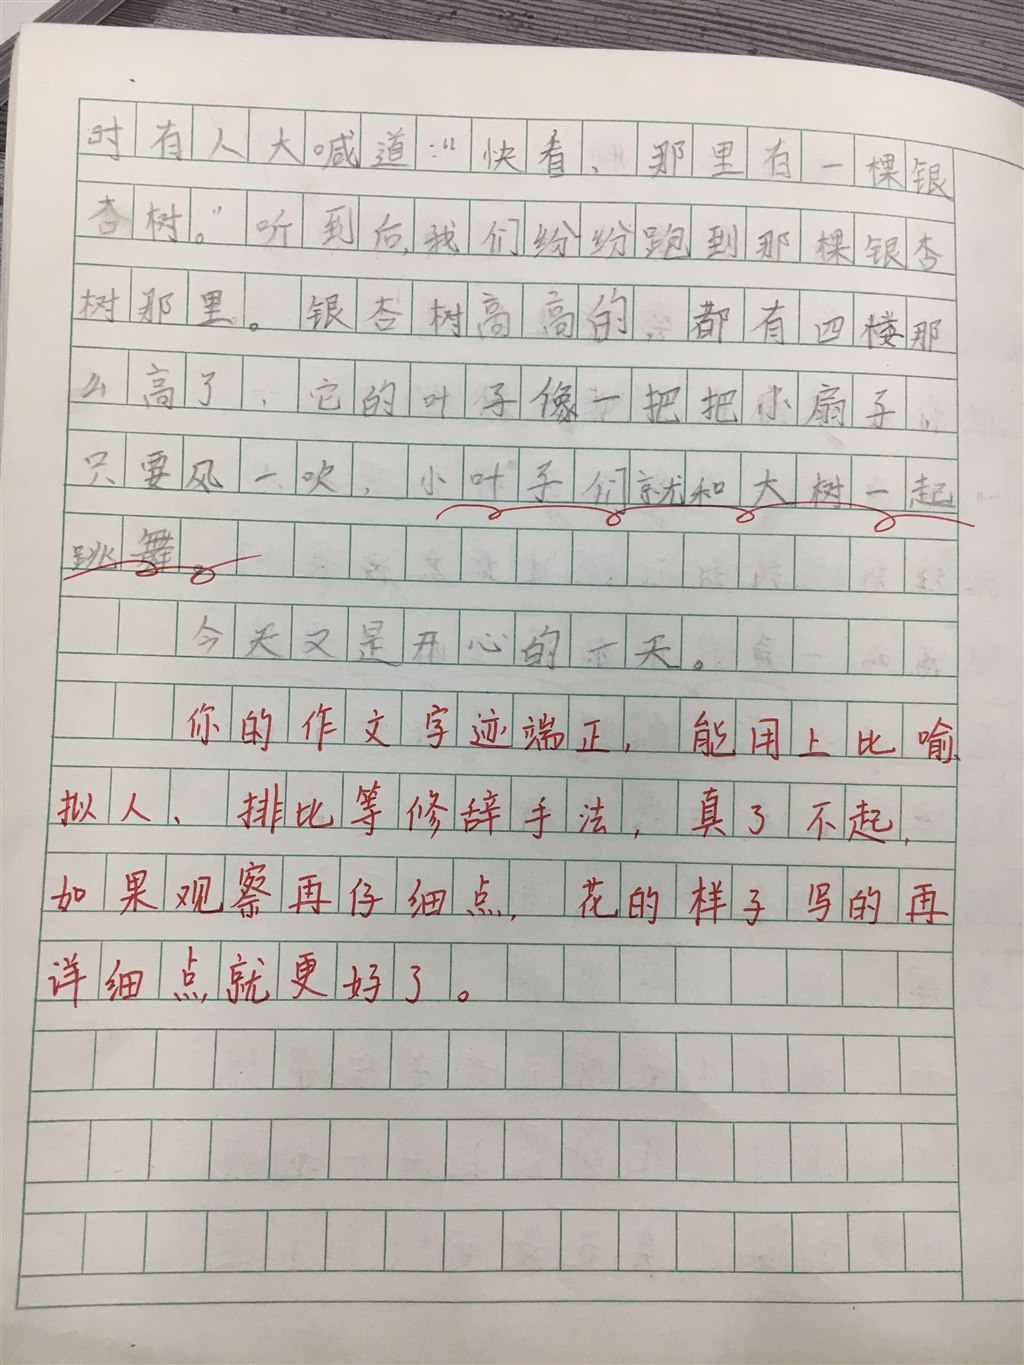 时有人大喊道:“快看、那里有一棵银
杏树。”听到后,我们纷纷跑到那棵银杏
树那里。银杏树高高的,都有四楼那
么高了,它的叶子像一把把小扇子,
只要风一吹,小叶子们就和大树一起
跳舞。
今天又是开心的一天。
你的作文字迹端正,能用上比喻、
拟人、排比等修辞手法,真了不起,
如果观察再仔细点,花的样子写的再
详细点就更好了。